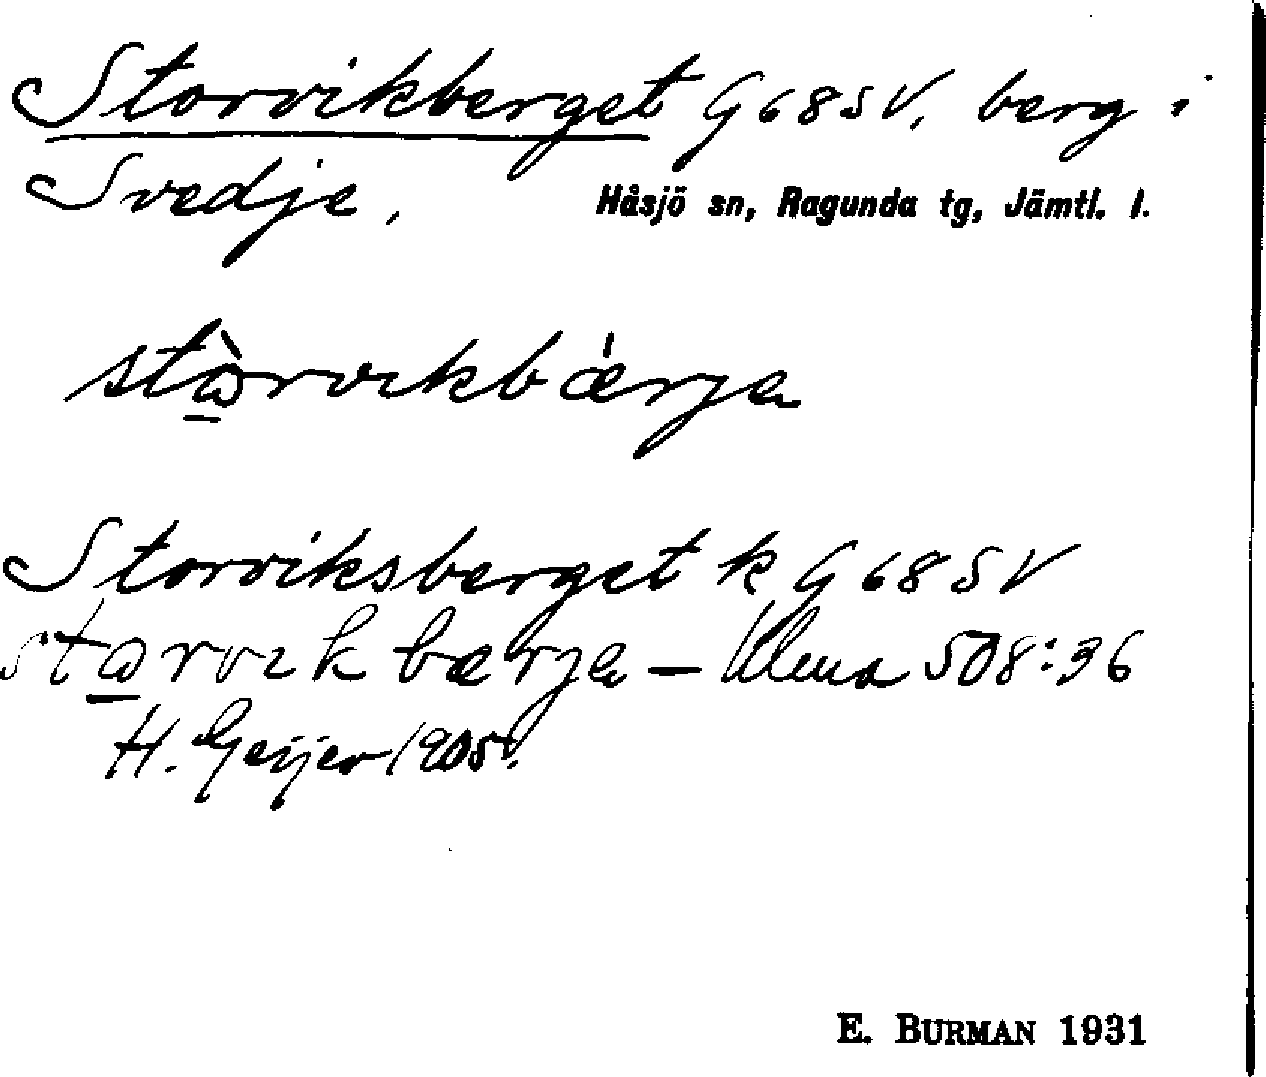 Storvikberget G 68 SV, berg i
Svedje, Håsjö sn, Ragunda tg, Jämtl. l.
stà̱rvikbǽrja
Storviksberget k G 68 SV
sta̱rvikbærja — Ulma 508:36
H. Geijer 1905.
E. BURMAN 1931